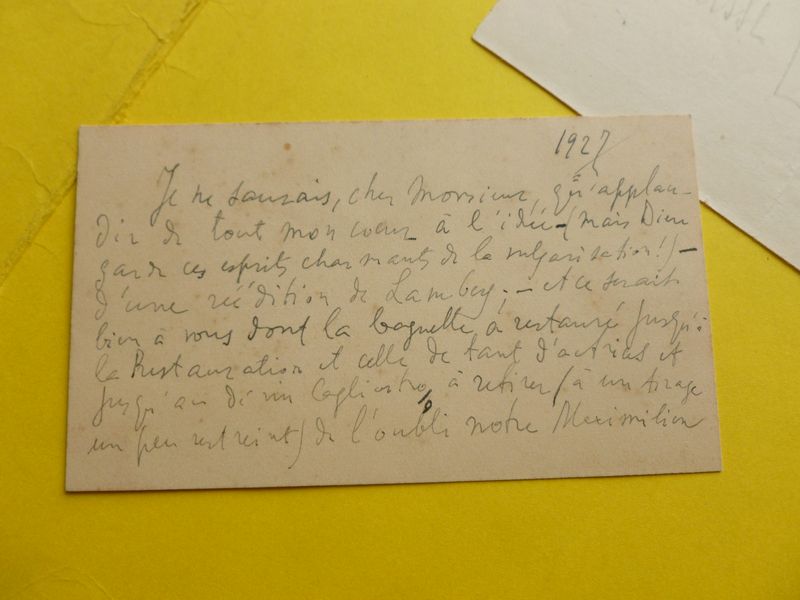 1927
Je ne saurais, cher Monsieur, qu'applau-
dir de tout mon coeur à l'idée — (mais Dieu
garde ces esprits charmants de la vulgarisation!) —
d'une réédition de Lamberg; — et ce serait
bien à vous dont la baguette a restauré jusqu'à
la Restauration et celle de tant d'actrices et
jusqu'au divin Cagliostro, à retirer (à un tirage
un peu restreint) de l'oubli notre Maximilien